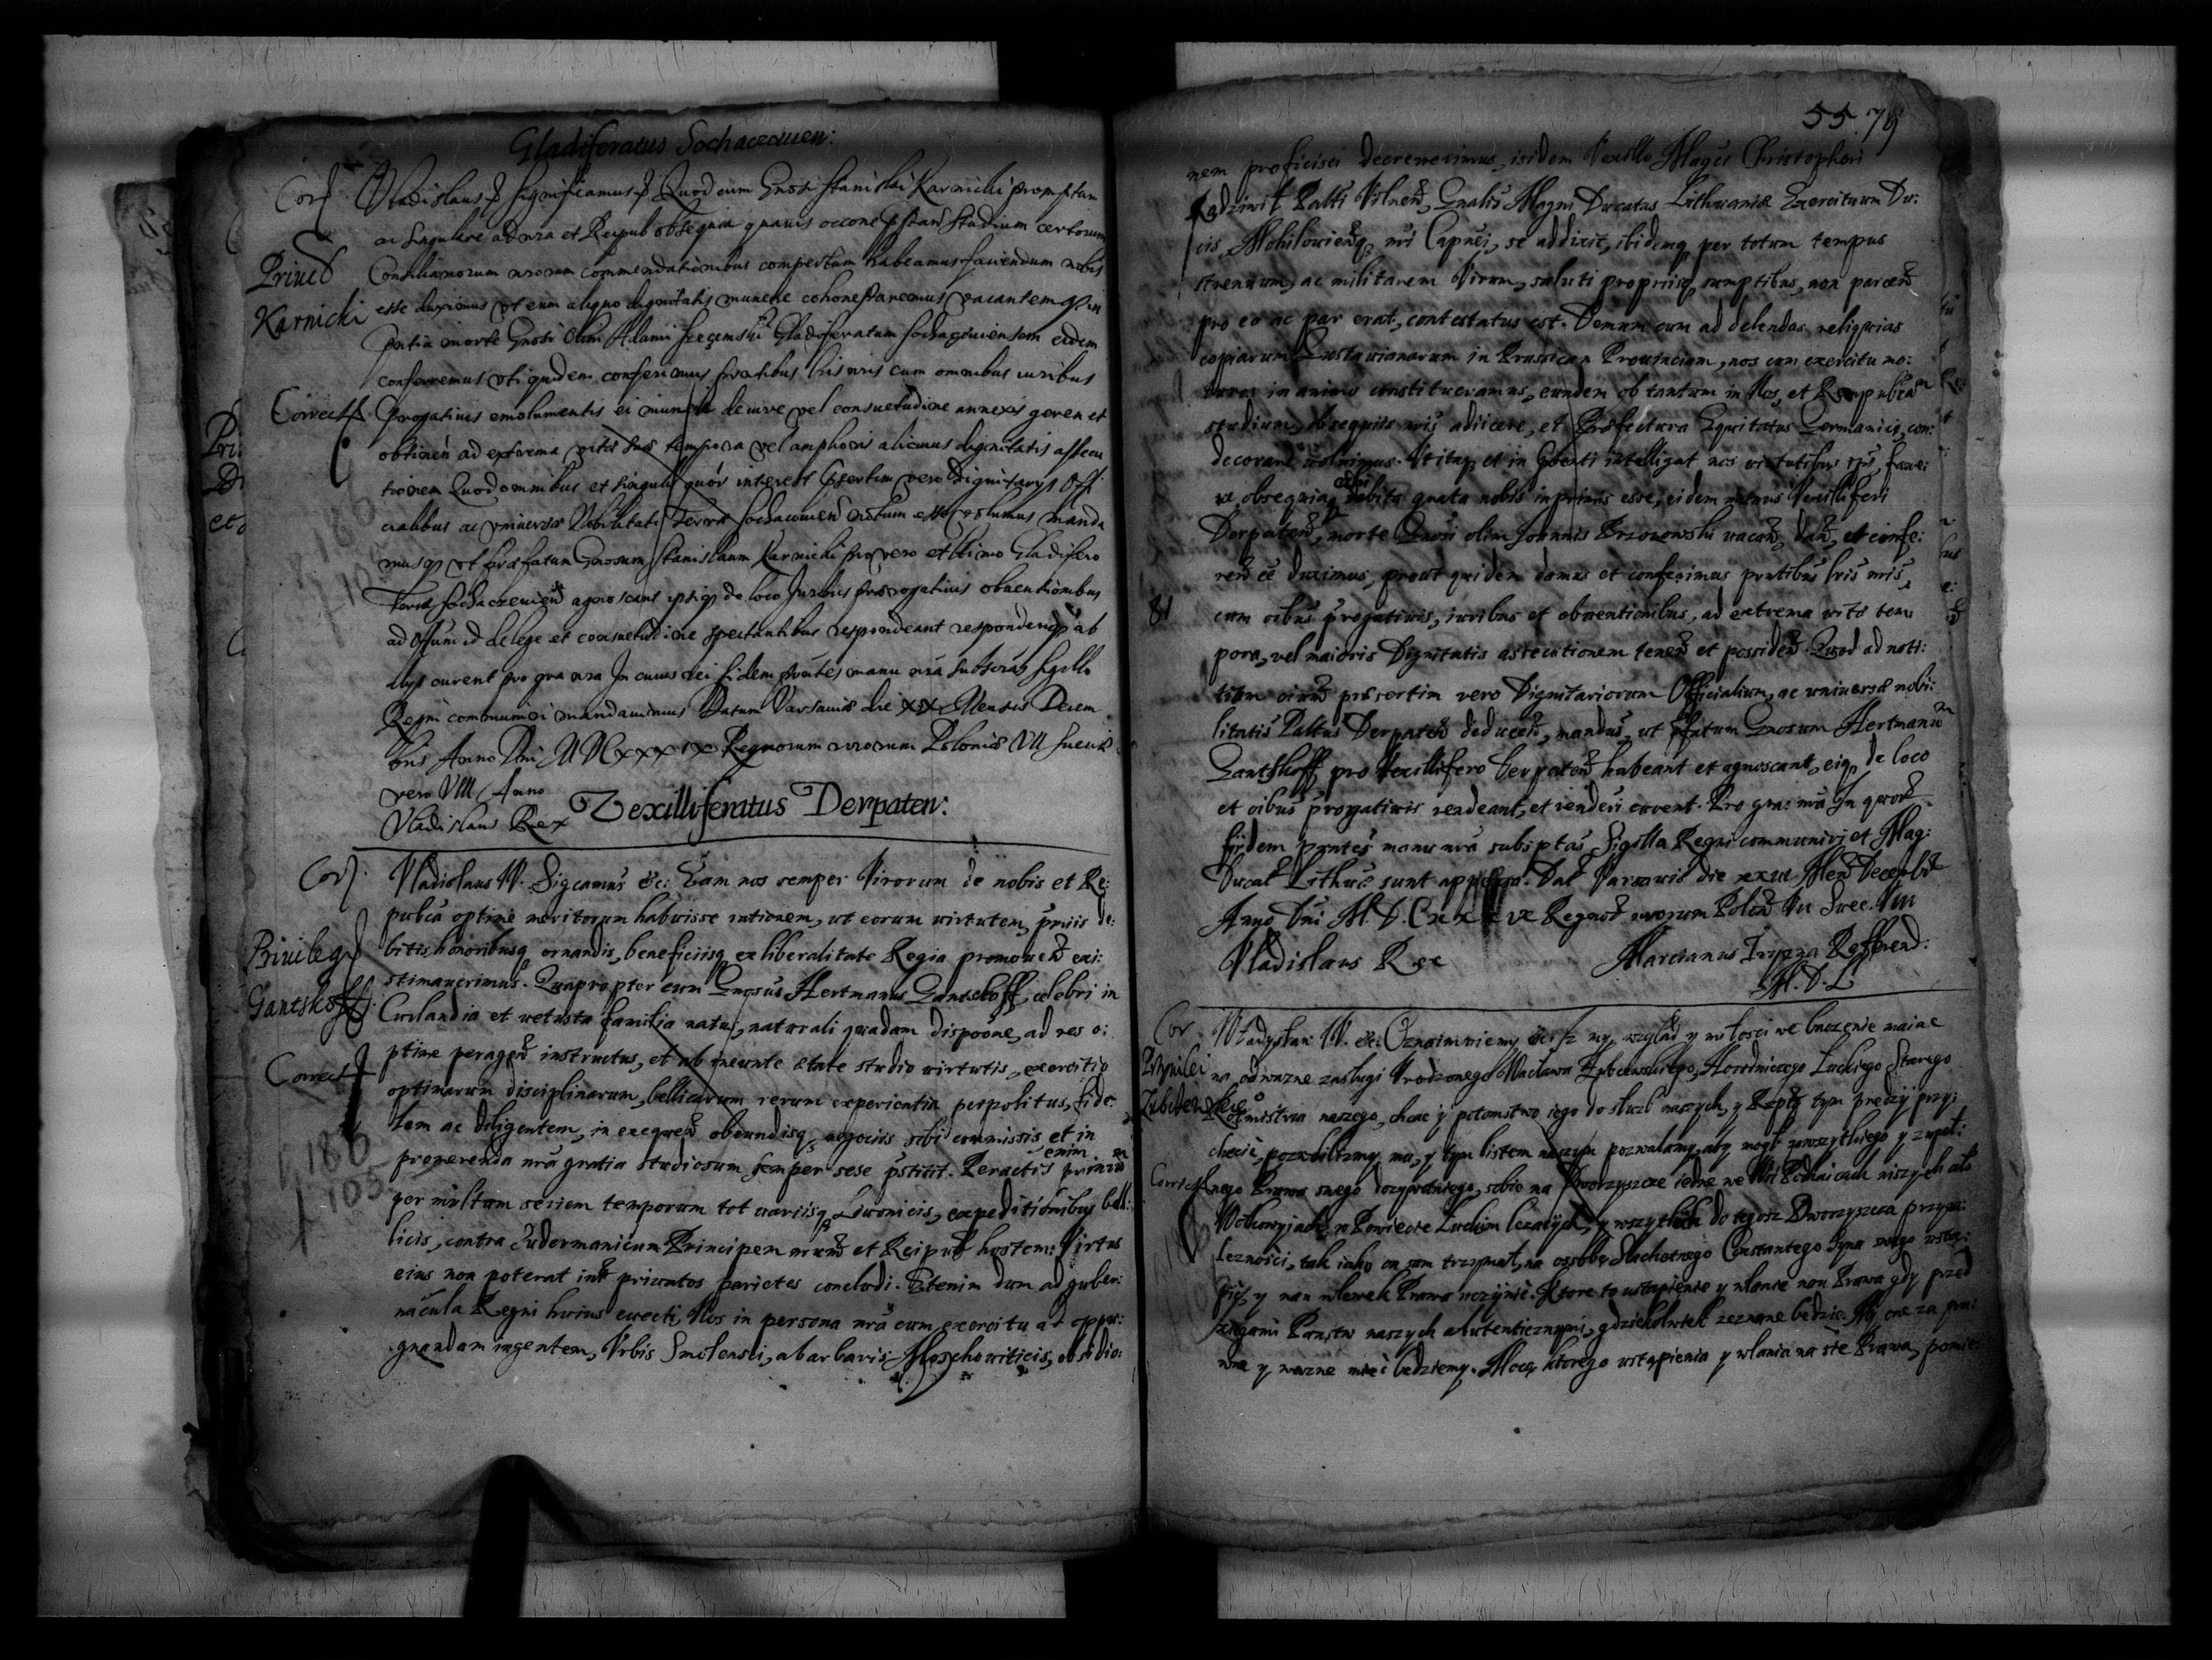 Gladiferatus Sochaczouien:
Corr. Vladislaus significamus Quod cum Gnosi Stanislai Karnicki promptum
ac singulare ad nra et Reipub obsequia quavis occone studium certorum
Priuil Consiliariorum nrorum commendationibus compertum habeamus faciendum nobis
Karnicki esse duximus vt eum aliquo dignitatis munere cohonestaremus vacantem
morte Gnosi Olim Adami Gladiferatum Sochaczouiensem eidem
conferremus vti quidem conferimus lris nris cum omnibus iuribus
Correct. emolumentis ei muneri de iure vel consuetudine annexis geren et
obtinen ad extrema vitæ suæ tempora vel amplioris alicuius dignitatis assecu
tionem Quod omnibus et singulis quor interest vero Dignitarys Offi
cialibus ac vniuersæ Nobilitati Terræ Sochaczouien notum esse volumus manda
musq vt præfatum Gnosum Stanislaum Karnicki pro vero et ltimo Gladifero
Terræ Sochaczeuien agnoscant ipsiq de loco Juribus prærogatiuis obuentionibus
ad Offum id de lege et consuetudine spectantibus respondeant responderiq ab
alys curent pro gra nra In cuius rei fidem pntes manu nra subscras Sigillo
Regni communiri mandauimus Datum Varsauiæ die XIX Mensis Decem
bris Anno Dni MDCXXXIX Regnorum nrorum Poloniæ VII Sueciæ
vero VIII Anno
Vladislaus Rex
Vexilliferatus Derpaten:
Corr. Vladislaus IV. Sigcamus &c: Eam nos semper Virorum de nobis et Re:
pubca optime meritorum habuisse rationem, ut eorum uirtutem, pmiis de:
Priuileg bitis, honoribusq ornandis, beneficiisq ex liberalitate Regia promouen exi:
stimauerimus. Quapropter cum Gnosus Hertmanus Gantskoff, celebri in
Gantskoff. Curlandia et uetusta familia natus, naturali quadam dispoone, ad res o:
ptime peragen instructus, et ab ineunte ætate studio uirtutis, exercitio
Correct optimarum disciplinarum, bellicarum rerum experientia perpolitus, fide
lem ac diligentem, in exequen obeundisq negociis sibi commissis et in
186 promerenda nra gratia studiosum semper sese pstitit. Peractis enim primum
105 per multam seriem temporum tot uariisq Liuonicis, expeditionibus bel:
licis, contra Sudermanicum Principem nrum et Reipub hostem: Virtus
eius non poterat intr priuatos parietes concludi. Etenim dum ad guber:
nacula Regni huius euecti, Nos in persona nra cum exercitu ad oppu:
gnandam ingentem, Vrbis Smolensci, a barbaris Moschouiticis, obsidio:
55. 79
nem proficisci decreuerimus, isidem Vexillo Magci Christopheri
Radziwil Palti Vilnen, Gnalis Magni Ducatus Lithuaniæ Exercituum Du:
cis, Mohilowienq nri Capnei, se addixit, ibidemq per totum tempus
strenuum, ac militarem Virum, saluti propriisq sumptibus, non parcen
pro eo ac par erat, contestatus est. Demum cum ad delendas reliquias
copiarum Gustauianarum in Prussicam Prouinciam, nos cum exercitu mo:
turos in animo constitueramus, eundem ob tantum in Nos, et Rempubcam
studium, obsequiis nris adiicere, et Præfectura Equitatus Germanici, con:
decorare uoluimus. Vt itaq et in intelligat nos uirtutibus eius, faue:
re obsequiaq sibi debita grata nobis inprimis esse, eidem munus Vexilliferi
Derpaten, morte Gnosi olim Joannis Brzozowski uacan, dan, et confe:
ren ee duximus, prout quidem damus et conferimus pntibus lris nris,
81 cum oibus progatiuis, iuribus et obuentionibus, ad extrema uitæ tem
pora, vel maioris Dignitatis assecutionem tenen et possiden. Quod ad noti:
tiam oium præsertim vero Dignitariorum Officialium, ac uniuersæ nobi:
litatis Paltus Derpaten deducen, mandus, ut pfatum Gnosum Hertmanum
Gantskoff pro Vexillifero Derpaten habeant et agnoscant, eiq de loco
et oibus progatiuis rendeant, et renderi curent. Pro gra: nra In quor
fidem pntes manu nra subsptas Sigilla Regni communiri et Mag:
Ducat Lithuæ sunt appressa. Dat Varsauiæ die XXIII Men Decembr
Anno Dni M. D. C XXXIX Regnor nrorum Polon VII Suec. VIII
Vladislaus Rex Marcianus Tryzna Reffrend:
M. D. L
Cor Wladysław IV. &c: Oznaimuiemy &c: Iz my, wzgląd y miłosciwe baczenie maiąc
Przywilei na odwazne zasługi Vrodzonego Wacława Zubcewskiego, Horodniczego Łuckiego Starego
Zubcewskie Rotmistrza naszego, chcąc y potomstwo iego do słuzb naszych, y Rzptey tym prędzey przy:
chęcic, pozwolilismy mu, y tym listem naszym pozwalamy, aby mogł zewszytkiego y zupeł:
Correct nego Prawa swego dozywotniego, sobie na Dworzyszcze iedne we Wsi Podhaicach niszych alo
Wołkowyiach, w Powiecie Łuckim lezących, y wszytkich do tegosz Dworzyszcza przyna:
leznosci, tak iako on sam trzymał, na osobę Szlachetnego Constantego Syna swego ustą:
pic, y nan wlewek Prawa uczynic. Ktore to ustąpienie y wlanie nan Prawa gdy przed
xięgami Panstw naszych autenticznymi, gdziekolwiek zeznane będzie. My, one za pew:
wne y wazne miec będziemy. Mocą ktorego ustąpienia y wlania na się Prawa, pomie: